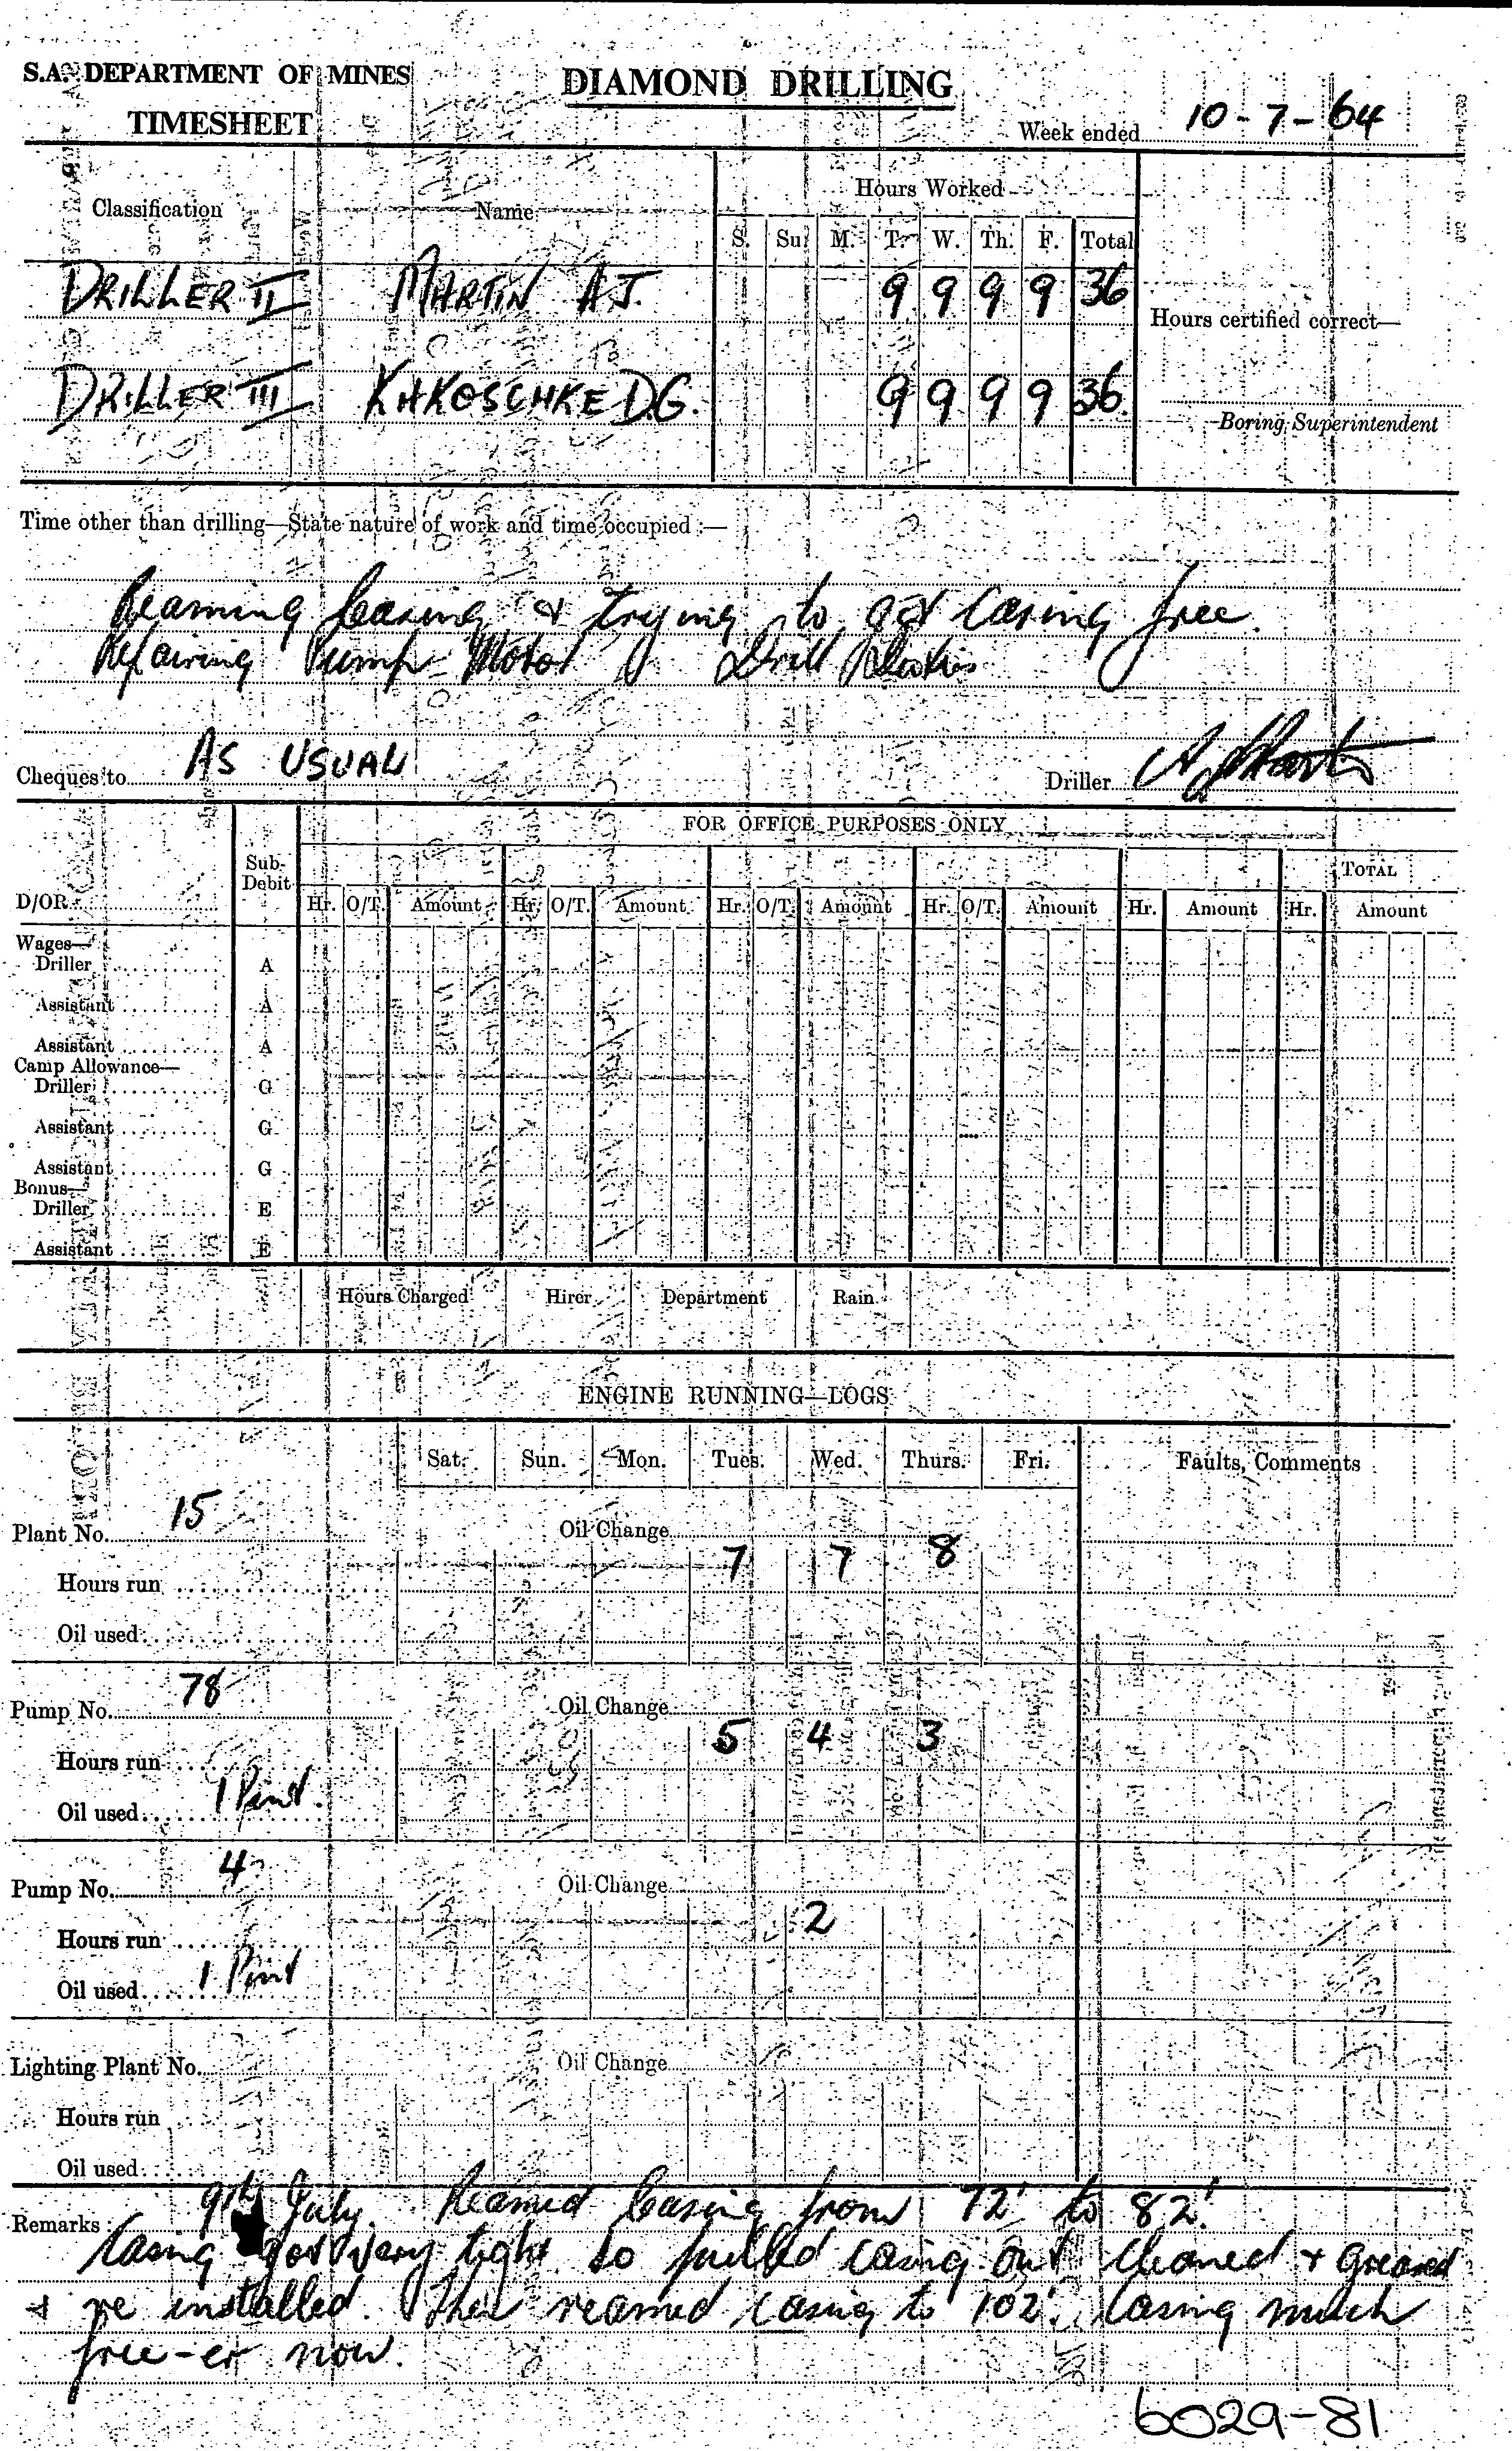 S.A. DEPARTMENT OF MINES
DIAMOND DRILLING
TIMESHEET
Week ended 10-7-64
Classification Name Hours Worked
S. Su. M. T. W. Th. F. Total
DRILLER II MARTIN A.J. 9 9 9 9 36
Hours certified correct—
DRILLER III D.G. 9 9 9 9 36
Boring Superintendent
Time other than drilling—State nature of work and time occupied :—
Reaming Casing & trying to get Casing free.
Repairing Pump Motor Drill
Cheques to AS USUAL
Driller
FOR OFFICE PURPOSES ONLY
D/OR Sub-Debit TOTAL
Hr. O/T. Amount Hr. O/T. Amount Hr. O/T. Amount Hr. O/T. Amount Hr. Amount Hr. Amount
Wages—
Driller A
Assistant A
Assistant A
Camp Allowance—
Driller G
Assistant G
Assistant G
Bonus—
Driller E
Assistant E
Hours Charged Hirer Department Rain
ENGINE RUNNING—LOGS
Sat. Sun. Mon. Tues. Wed. Thurs. Fri. Faults, Comments
Plant No. 15 Oil Change
Hours run 7 7 8
Oil used
Pump No. 78 Oil Change
Hours run 5 4 3
Oil used 1 Pint.
Pump No. 4 Oil Change
Hours run 2
Oil used 1 Pint
Lighting Plant No. Oil Change
Hours run
Oil used
Remarks: 9th July. Reamed Casing from 72' to 82'.
Casing got very tight so pulled casing out cleaned & greased
& re installed. Then reamed casing to 102'. Casing much
free-er now.
6029-81